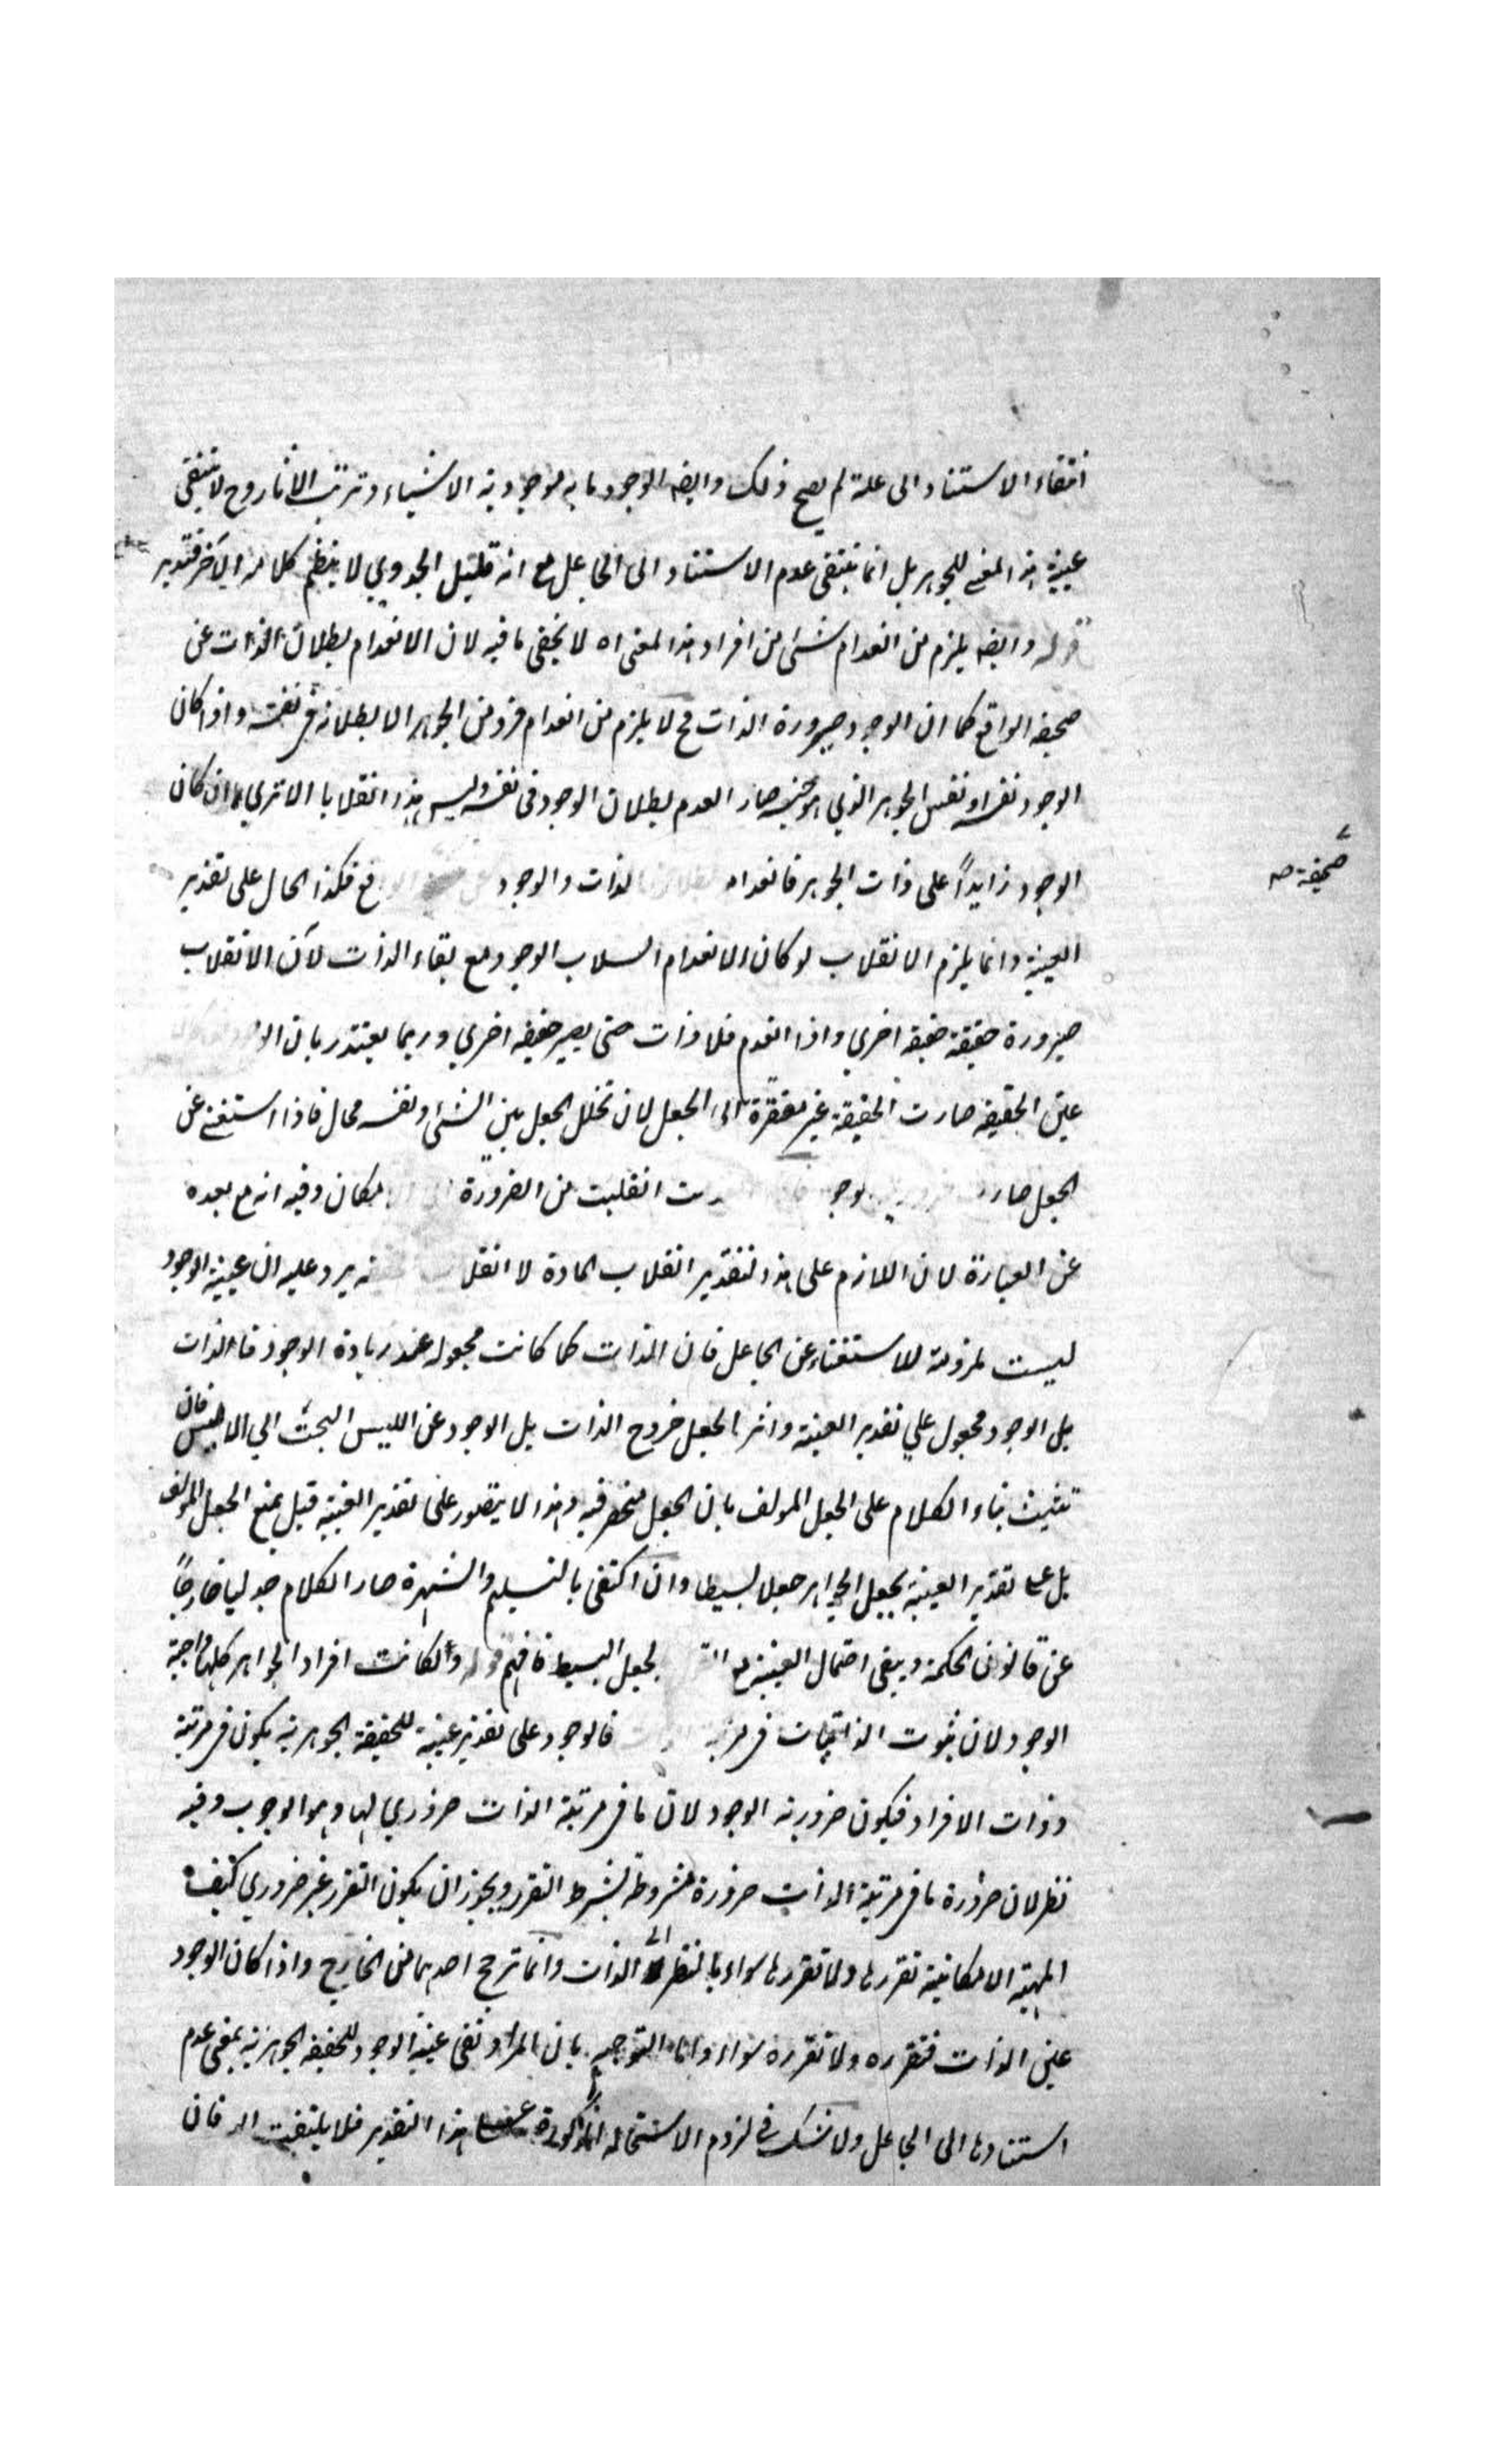 انتفاء الاستناد الى علة لم يصح ذلك وايضا الوجود ما به موجودية الاشياء وترتب الاثار وح لا ينتفى
عينية هذا المعنى للجوهر بل انما ينتفى عدم الاستناد الى الجاعل مع انه قليل الجدوي لا ينظم كلامه الآخر فتدبر
قوله وايضا يلزم من انعدام شئ من افراد هذا المعنى اه لا يخفى ما فيه لان الانعدام بطلان الذات عن
صحيفة الواقع كما ان الوجود صيرورة الذات فح لا يلزم من انعدام فرد من الجوهر الا بطلانه في نفسه واذا كان
الوجود نفسه او نفس الجوهر الذي هو جنسه صار العدم بطلان الوجود فى نفسه وليس هذا انقلابا الا تري ان كان
الوجود زايداً على ذات الجوهر فانعدام الذات والوجود فكذا الحال على تقدير
صحيفة صـ
العينية وانما يلزم الانقلاب لو كان الانعدام انسلاب الوجود مع بقاء الذات لان الانقلاب
صيرورة حقيقة حقيقة اخري واذا انعدم فلا ذات حتى يصير حقيقة اخري وربما يعتذر بان
عين الحقيقة صارت الحقيقة غير مفتقرة الى الجعل لان تخلل الجعل بين الشئ ونفسه محال فاذا استغنى عن
الجعل صار انقلبت من الضرورة وفيه انه مع بعده
عن العبارة لان اللازم على هذا التقدير انقلاب المادة لا يرد عليه ان عينية الوجود
ليست ملزومة للاستغناء عن الجاعل فان الذات كما كانت مجعولة عند زيادة الوجود فالذات
بل الوجود مجعول علي تقدير العينية واثر الجعل خروج الذات بل الوجود عن الليس البحث الي الايس فان
تشبث بناء الكلام على الجعل المولف بان الجعل منحصر فيه وهذا لا يتصور على تقدير العينية قيل بمنع الجعل المولف
بل على تقدير العينية بجعل الجواهر جعلا بسيطا وان اكتفى بالتسليم والشهرة صار الكلام جدليا خارجاً
عن قانون الحكمة ويبقى احتمال العينية مع الجعل البسيط فافهم قوله ولكانت افراد الجواهر كلها واجبة
الوجود لان ثبوت الذاتيات في مرتبة فالوجود على تقدير عينية للحقيقة الجوهرية يكون في مرتبة
وذات الافراد فيكون ضرورية الوجود لان ما في مرتبة الذات ضروري لها وهو الوجوب وفيه
نظر لان ضرورة ما في مرتبة الذات ضرورة مشروطة بشرط التقرر ويجوز ان يكون التقرر غير ضروري كيف
المهية الامكانية تقررها ولا تقررها سواء بالنظر الى الذات وانما ترجح احدهما من الخارج واذا كان الوجود
عين الذات فتقرره ولا تقرره سواء واما التوجيه بان المراد نفى عينية الوجود للحقيقة الجوهرية بمعنى عدم
استنادها الى الجاعل ولا شك في لزوم الاستحالة المذكورة على هذا التقدير فلا يلتفت اليه فان